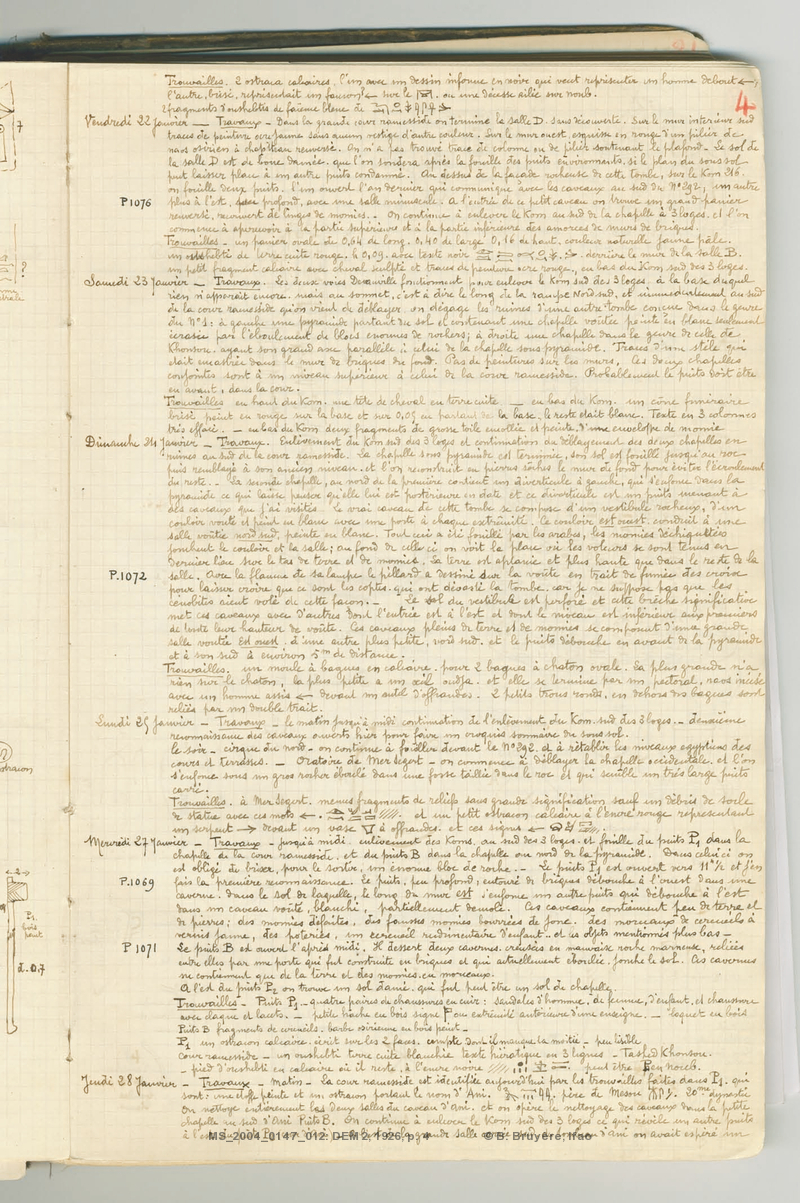 Trouvailles. 2 ostraca calcaires, l'un avec un dessin informe en noir qui veut représenter un homme debout
l'autre, brisé, représentait un faucon sur le ou une déesse ailée sur noub.
2 fragments d'oushebtis de faïence bleue de
4
Vendredi 22 janvier — Travaux — Dans la grande cour ramesside on termine la salle D. sans découverte. Sur le mur intérieur sud
traces de peinture ocre jaune sans aucun vestige d'autre couleur. Sur le mur ouest esquisse en rouge d'un pilier de
naos osirien à chapiteau renversé. On n'a pas trouvé trace de colonne ou de pilier soutenant le plafond. Le sol de
la salle D est de boue damée que l'on sondera après la fouille des puits environnants, si le plan du sous sol
peut laisser place à un autre puits condamné. Au dessus de la façade rocheuse de cette tombe, sur le Kom 216.
on fouille deux puits. l'un ouvert l'an dernier qui communique avec les caveaux au sud du N° 292, un autre
P1076
plus à l'est, peu profond, avec une salle minuscule. A l'entrée de ce petit caveau on trouve un grand panier
renversé, recouvert de linges de momies. — On continue à enlever le Kom au sud de la chapelle à 3 loges, et l'on
commence à apercevoir à la partie supérieure et à la partie inférieure des amorces de murs de briques.
Trouvailles — un panier ovale de 0,64 de long, 0,40 de large 0,16 de haut, couleur naturelle jaune pâle.
un oushebti de terre cuite rouge, h 0,09. avec texte noir derrière le mur de la salle B.
un petit fragment calcaire avec cheval sculpté et traces de peinture ocre rouge, en bas du Kom sud des 3 loges.
Samedi 23 janvier — Travaux. Les deux voies Decauville fonctionnent pour enlever le Kom sud des 3 loges, à la base duquel
rien n'apparaît encore. mais au sommet, c'est à dire le long de la rampe Nord.sud, et immédiatement au sud
de la cour ramesside qu'on vient de déblayer, on dégage les ruines d'une autre tombe conçue dans le genre
du N° 1; à gauche une pyramide partant du sol et contenant une chapelle voûtée peinte en blanc seulement
écrasée par l'éboulement de blocs énormes de rochers; à droite une chapelle dans le genre de celle de
Khonsou. ayant son grand axe parallèle à celui de la chapelle sous pyramide. Traces d'une stèle qui
était encastrée dans le mur de briques du fond. Pas de peintures sur les murs. Ces deux chapelles
conjointes sont à un niveau supérieur à celui de la cour ramesside. Probablement le puits doit être
en avant, dans la cour.
Trouvailles en haut du Kom. une tête de cheval en terre cuite — en bas du Kom. un cône funéraire
brisé peint en rouge sur la base et sur 0,05 en partant de la base, le reste était blanc. Texte en 3 colonnes
très effacé. — en bas du Kom deux fragments de grosse toile encollée et peinte, d'une enveloppe de momie
Dimanche 24 Janvier — Travaux. Enlèvement du Kom sud des 3 loges et continuation du déblayement des deux chapelles en
ruines au sud de la cour ramesside. La chapelle sous pyramide est terminée, son sol est fouillé jusqu'au roc
puis remblayé à son ancien niveau, et l'on reconstruit en pierres sèches le mur de fond pour éviter l'écroulement
du reste. — La seconde chapelle, au nord de la première contient un diverticule à gauche, qui s'enfonce dans la
pyramide ce qui laisse penser qu'elle lui est postérieure en date et ce diverticule est un puits menant à
des caveaux que j'ai visités. Le vrai caveau de cette tombe se compose d'un vestibule rocheux, d'un
couloir voûté et peint en blanc avec une porte à chaque extrémité. le couloir est ouest. conduit à une
salle voûtée nord sud, peinte en blanc. Tout ceci a été fouillé par les arabes, les momies déchiquetées
jonchent le couloir et la salle; au fond de celle ci on voit la place où les voleurs se sont tenus en
dernier lieu sur le tas de terre et de momies. La terre est aplanie et plus haute que dans le reste de la
P.1072
salle. Avec la flamme de sa lampe le pillard a dessiné sur la voûte en trait de fumée des croix
pour laisser croire que ce sont les coptes qui ont dévasté la tombe, car je ne suppose pas que les
cénobites aient volé de cette façon. — Le sol du vestibule est perforé et cette brèche significative
met ces caveaux avec d'autres dont l'entrée est à l'est et dont le niveau est inférieur aux premiers
de toute leur hauteur de voûte. Ces caveaux pleins de terre et de momies se composent d'une grande
salle voûtée est ouest. à une autre plus petite, nord sud. et le puits débouche en avant de la pyramide
et à son sud à environ 5m de distance.
Trouvailles. un moule à bagues en calcaire. pour 2 bagues à chaton ovale. la plus grande n'a
rien sur le chaton, la plus petite a un œil oudja. et elle se termine par un pectoral, naos incisé
avec un homme assis devant un autel d'offrandes. 2 petits trous ronds, en dehors des bagues sont
reliés par un double trait.
Lundi 25 janvier — Travaux — le matin jusqu'à midi continuation de l'enlèvement du Kom sud des 3 loges. — deuxième
reconnaissance des caveaux ouverts hier pour faire un croquis sommaire du sous sol.
le soir — cirque du nord — on continue à fouiller devant le N° 292. et à rétablir les niveaux égyptiens des
cours et terrasses. — Oratoire de Mer Segert — on commence à déblayer la chapelle occidentale. et l'on
s'enfonce sous un gros rocher éboulé dans une fosse taillée dans le roc et qui semble un très large puits
carré.
Trouvailles. à Mer Segert. menus fragments de reliefs sans grande signification sauf un débris de socle
de statue avec ces mots et un petit ostracon calcaire à l'encre rouge représentant
un serpent devant un vase à offrandes. et ces signes
Mercredi 27 Janvier — Travaux — jusqu'à midi. enlèvement des Koms, au sud des 3 loges. et fouille du puits P1 dans la
chapelle de la cour ramesside, et du puits B dans la chapelle au nord de la pyramide. Dans celui ci on
est obligé de briser, pour le sortir, un énorme bloc de roche. — Le puits P1 est ouvert vers 11h ½ et j'en
P.1069
fais la première reconnaissance. Ce puits, peu profond, entouré de briques débouche à l'ouest dans une
caverne. Dans le sol de laquelle, le long du mur est s'enfonce un autre puits qui débouche à l'est
dans un caveau voûté, blanchi, partiellement démoli. Ces caveaux contiennent peu de terre et
de pierres; des momies défaites, des fausses momies bourrées de jonc. des morceaux de cercueils à
vernis jaune, des poteries, un cercueil rudimentaire d'enfant.. et les objets mentionnés plus bas —
P 1071
Le puits B est ouvert l'après midi, Il dessert deux cavernes creusées en mauvaise roche marneuse, reliées
entre elles par une porte qui fut construite en briques et qui actuellement éboulée, jonche le sol. Ces cavernes
ne contiennent que de la terre et des momies en morceaux.
A l'est du puits P2 on trouve un sol damé, qui fut peut être un sol de chapelle.
Trouvailles — Puits P1 — quatre paires de chaussures en cuir: sandales d'homme, de femme, d'enfant, et chaussure
avec claque et lacets. — petite hache en bois signe ou extrémité antérieure d'une enseigne. — loquet en bois
Puits B fragments de cercueils. barbe osirienne en bois peint —
P1 un ostracon calcaire. écrit sur les 2 faces. compte dont il manque la moitié — peu lisible
Cour ramesside — un oushebti terre cuite blanchie texte hiératique en 3 lignes — Tashed Khonsou.
— pied d'oushebti en calcaire où il reste, à l'encre noire peut être Pen noieb.
Jeudi 28 Janvier — Travaux — Matin — La cour ramesside est identifiée aujourd'hui par les trouvailles faites dans P1. qui
sont: une étoffe peinte et un ostracon portant le nom d'Ani. père de Mesnu 20me dynastie
On nettoye entièrement les deux salles du caveau d'Ani. et on opère le nettoyage des caveaux dans la petite
chapelle au sud d'Ani Puits B. On continue à enlever le Kom sud des 3 loges ce qui révèle un autre puits
7
?
ostracon
P1
bois
peint
d. 0,7
MS_2004_0147_012: DEM 2, 1926, p. 4 © B. Bruyère, Ifao